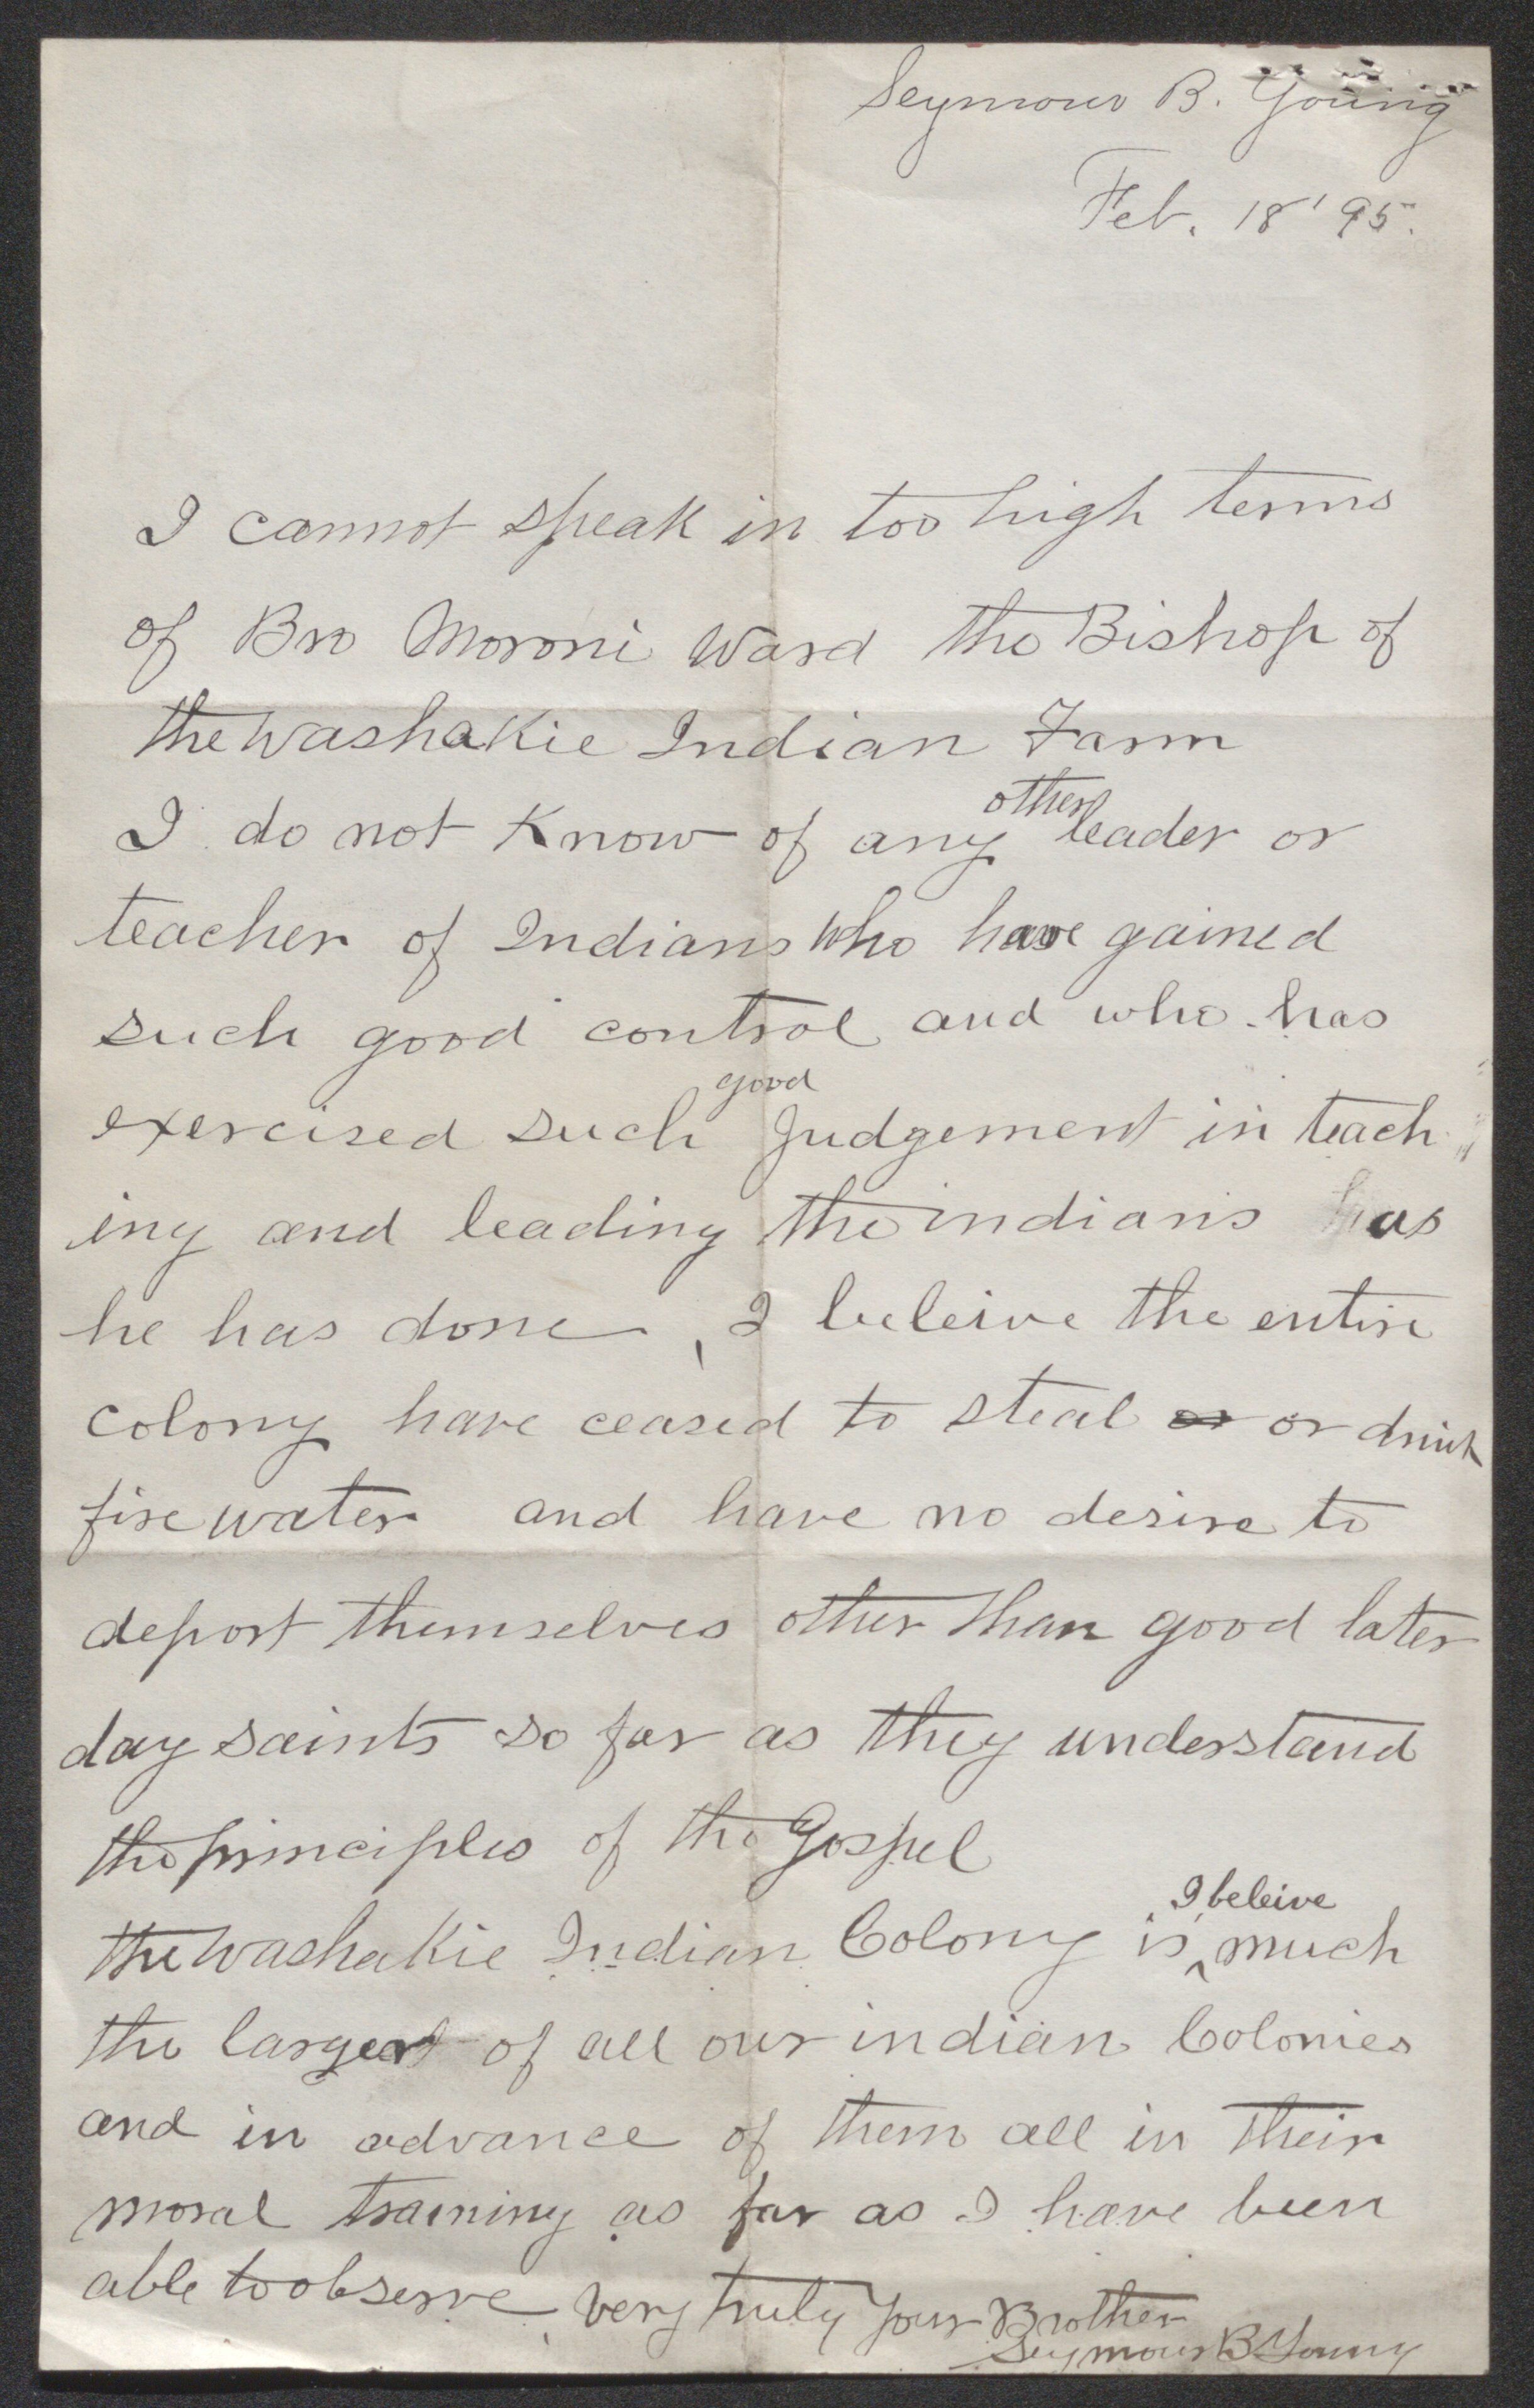 Seymour B. Young
Feb. 18 '95.
I cannot speak in too high terms
of Bro Moroni Ward the Bishop of
the Washakie Indian Farm
I do not Know of any other leader or
teacher of Indians who have gained
such good control and who has
exercised such good Judgement in teach
ing and leading the indians as
he has done, I beleive the entire
colony have ceased to steal or or drink
fire water and have no desire to
deport themselves other than good later
day saints so far as they understand
the principles of the Gospel
the Washakie Indian Colony is I beleive much
the largest of all our indian Colonies
and in advance of them all in their
moral training as far as I have been
able to observe very truly your Brother
Seymour B Young